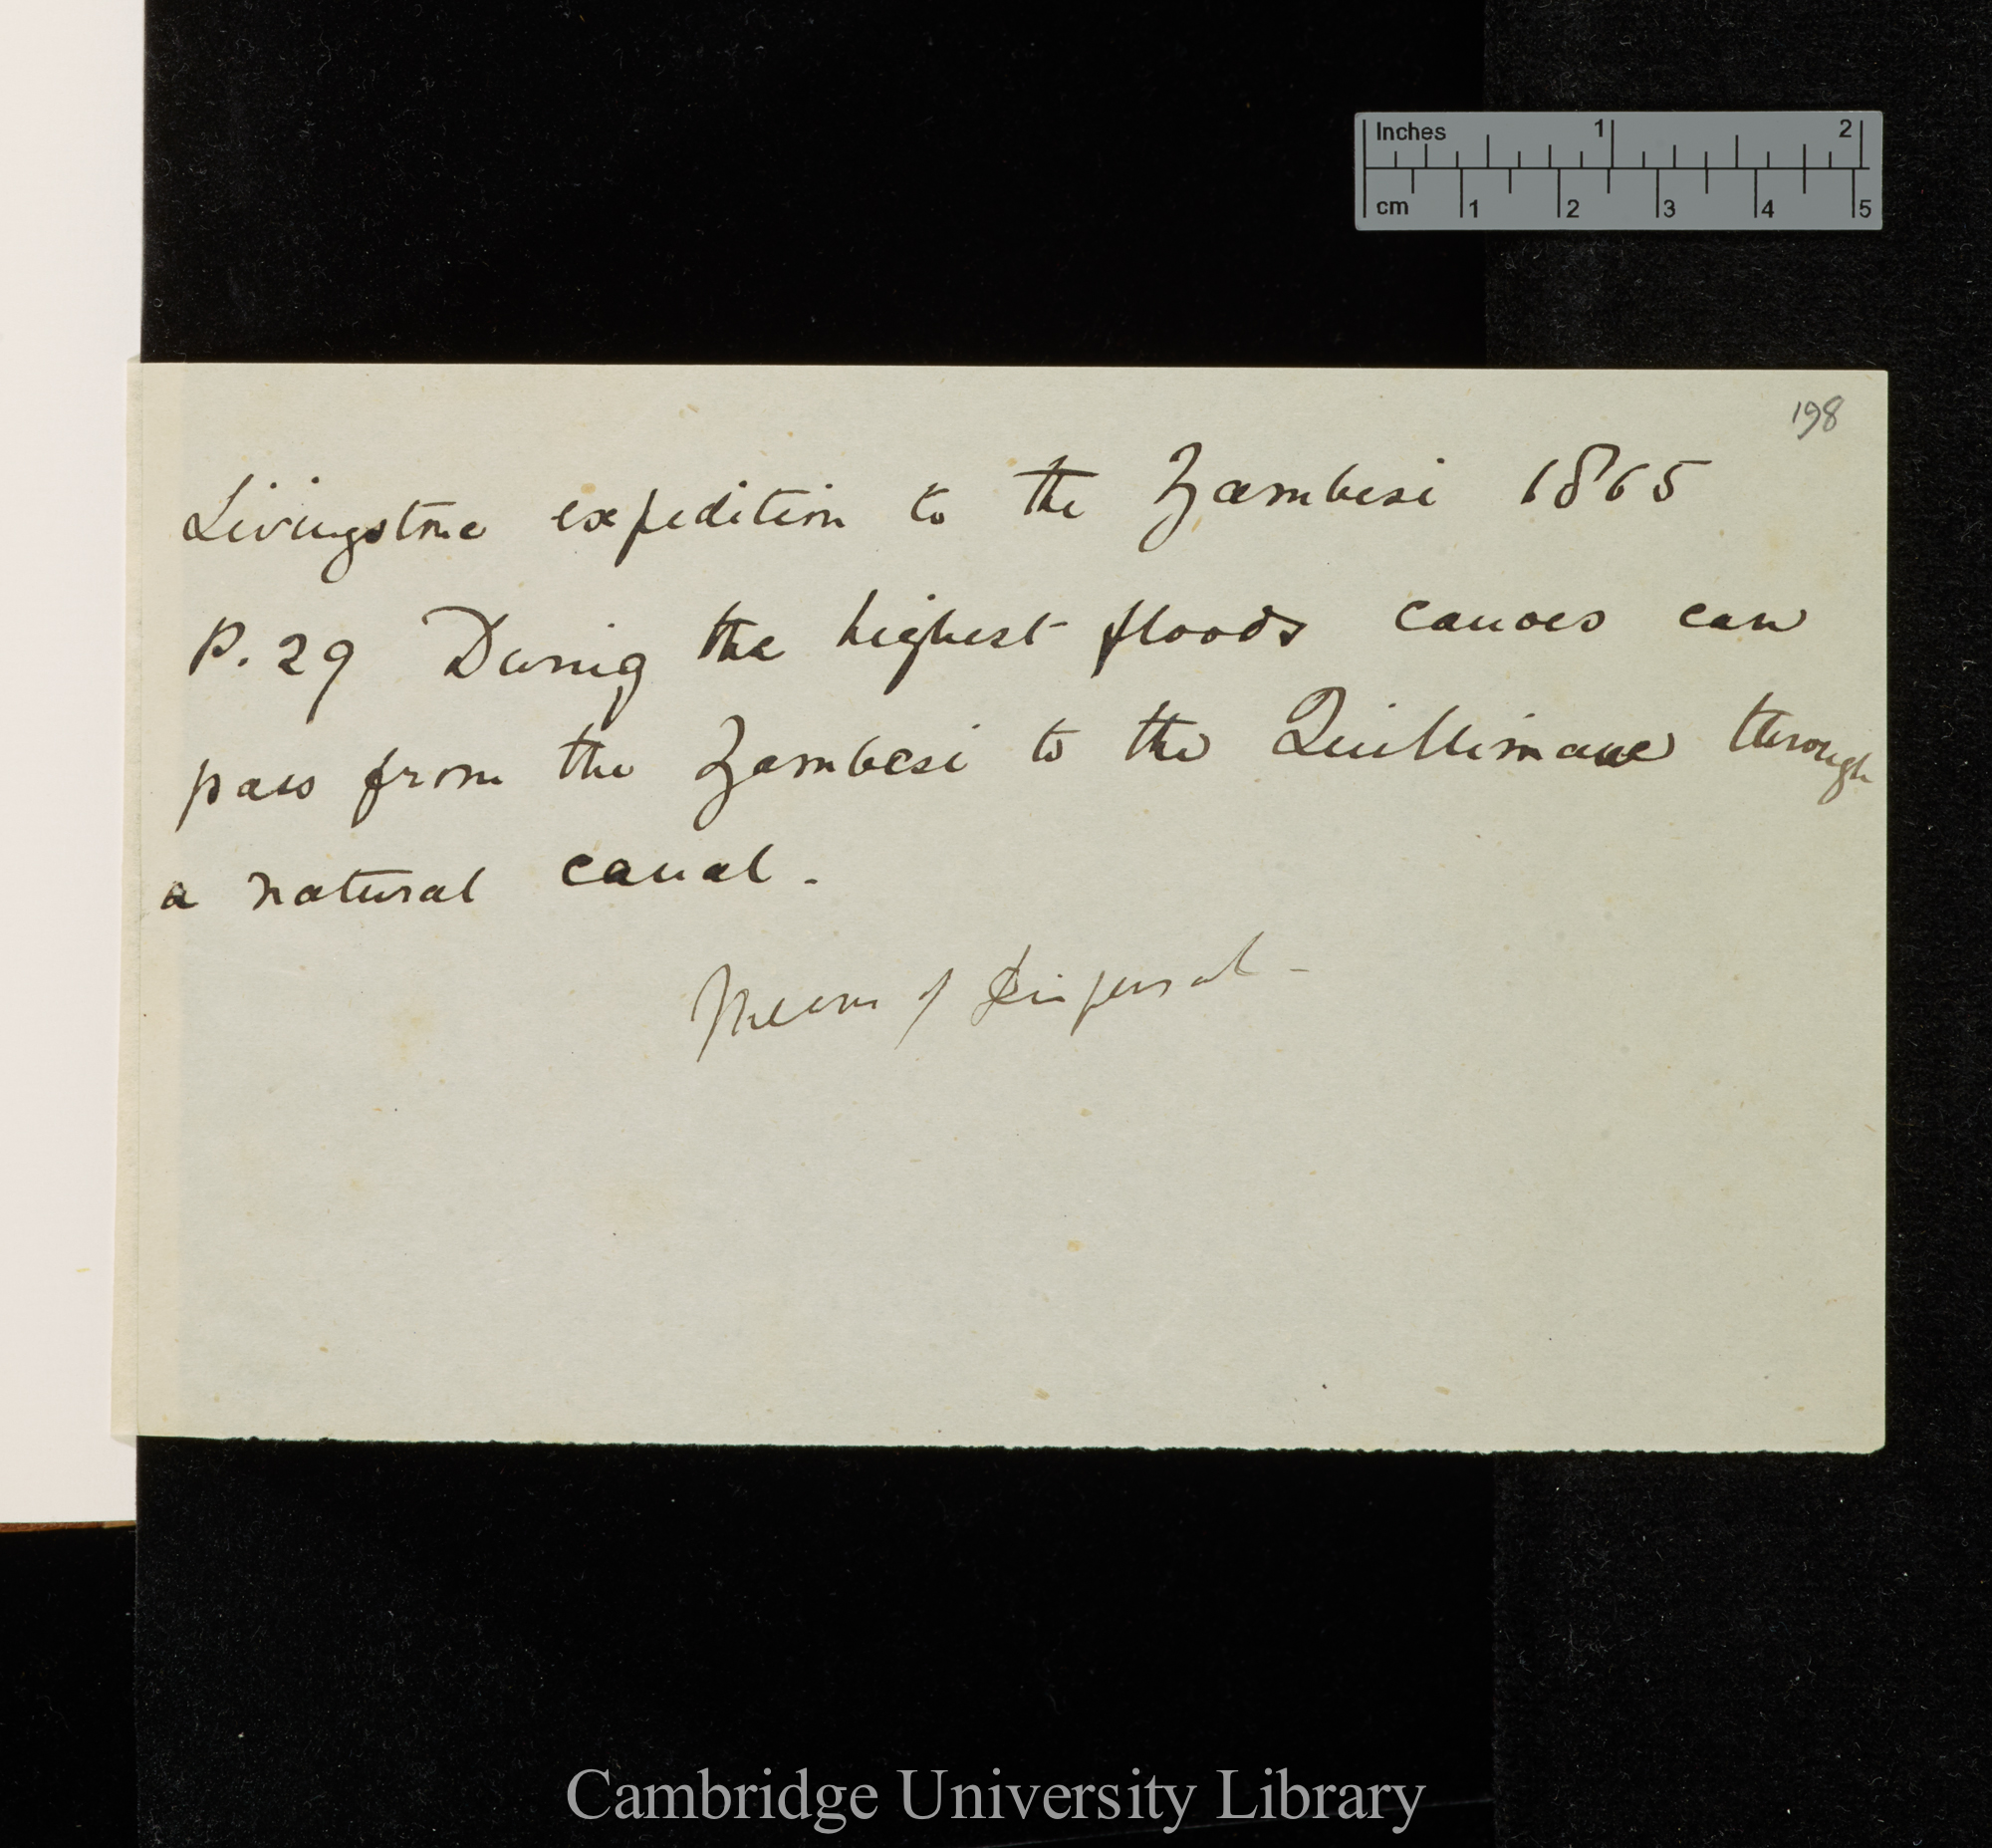 Inches 1 2
cm 1 2 3 4 5
198
Livingstone expedition to the Zambesi 1865
P. 29 During the highest floods canoes can
pass from the Zambesi to the Quillimane through
a natural canal.
Means of Dispersal -
Cambridge University Library